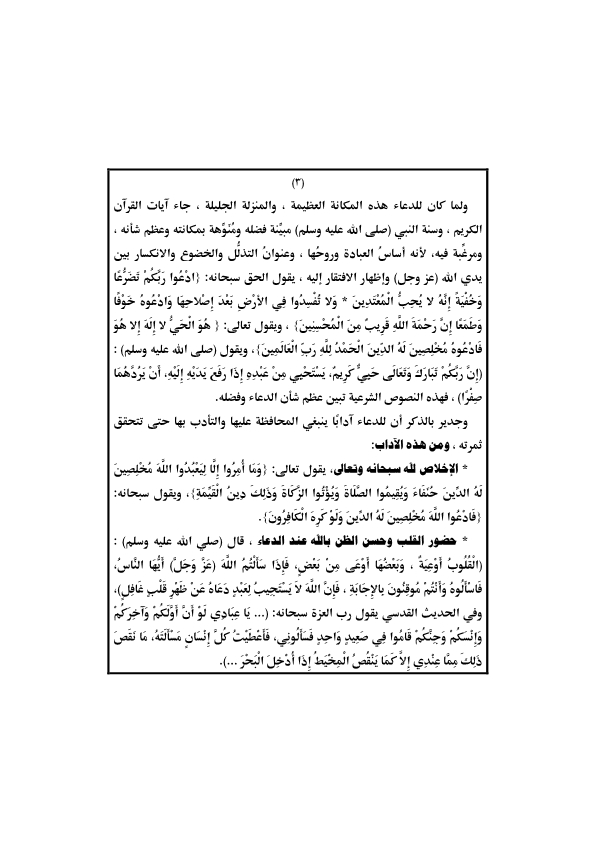 (٣)
ولما كان للدعاء هذه المكانة العظيمة ، والمنزلة الجليلة ، جاء آيات القرآن
الكريم ، وسنة النبي (صلى الله عليه وسلم) مبيِّنة فضله ومُنَوِّهة بمكانته وعظم شأنه ،
ومرغِّبة فيه، لأنه أساسُ العبادة وروحُها ، وعنوانُ التذلُّل والخضوع والانكسار بين
يدي الله (عز وجل) وإظهار الافتقار إليه ، يقول الحق سبحانه: {ادْعُوا رَبَّكُمْ تَضَرُّعًا
وَخُفْيَةً إِنَّهُ لا يُحِبُّ الْمُعْتَدِينَ * وَلا تُفْسِدُوا فِي الأَرْضِ بَعْدَ إِصْلاحِهَا وَادْعُوهُ خَوْفًا
وَطَمَعًا إِنَّ رَحْمَةَ اللَّهِ قَرِيبٌ مِنَ الْمُحْسِنِينَ} ، ويقول تعالى: { هُوَ الْحَيُّ لا إِلَهَ إِلا هُوَ
فَادْعُوهُ مُخْلِصِينَ لَهُ الدِّينَ الْحَمْدُ لِلَّهِ رَبِّ الْعَالَمِينَ}، ويقول (صلى الله عليه وسلم) :
(إِنَّ رَبَّكُمْ تَبَارَكَ وَتَعَالَى حَيِيٌّ كَرِيمٌ، يَسْتَحْيِي مِنْ عَبْدِهِ إِذَا رَفَعَ يَدَيْهِ إِلَيْهِ، أَنْ يَرُدَّهُمَا
صِفْرًا) ، فهذه النصوص الشرعية تبين عظم شأن الدعاء وفضله.
وجدير بالذكر أن للدعاء آدابًا ينبغي المحافظة عليها والتأدب بها حتى تتحقق
ثمرته ، ومن هذه الآداب:
* الإخلاص لله سبحانه وتعالى، يقول تعالى: {وَمَا أُمِرُوا إِلَّا لِيَعْبُدُوا اللَّهَ مُخْلِصِينَ
لَهُ الدِّينَ حُنَفَاءَ وَيُقِيمُوا الصَّلَاةَ وَيُؤْتُوا الزَّكَاةَ وَذَلِكَ دِينُ الْقَيِّمَةِ}، ويقول سبحانه:
{فَادْعُوا اللَّهَ مُخْلِصِينَ لَهُ الدِّينَ وَلَوْ كَرِهَ الْكَافِرُونَ}.
* حضور القلب وحسن الظن بالله عند الدعاء ، قال (صلى الله عليه وسلم) :
(الْقُلُوبُ أَوْعِيَةٌ ، وَبَعْضُهَا أَوْعَى مِنْ بَعْضٍ، فَإِذَا سَأَلْتُمُ اللَّهَ (عَزَّ وَجَلَّ) أَيُّهَا النَّاسُ،
فَاسْأَلُوهُ وَأَنْتُمْ مُوقِنُونَ بِالإِجَابَةِ ، فَإِنَّ اللَّهَ لاَ يَسْتَجِيبُ لِعَبْدٍ دَعَاهُ عَنْ ظَهْرِ قَلْبٍ غَافِلٍ)،
وفي الحديث القدسي يقول رب العزة سبحانه: (... يَا عِبَادِي لَوْ أَنَّ أَوَّلَكُمْ وَآخِرَكُمْ
وَإِنْسَكُمْ وَجِنَّكُمْ قَامُوا فِي صَعِيدٍ وَاحِدٍ فَسَأَلُونِي، فَأَعْطَيْتُ كُلَّ إِنْسَانٍ مَسْأَلَتَهُ، مَا نَقَصَ
ذَلِكَ مِمَّا عِنْدِي إِلاَّ كَمَا يَنْقُصُ الْمِخْيَطُ إِذَا أُدْخِلَ الْبَحْرَ ...).